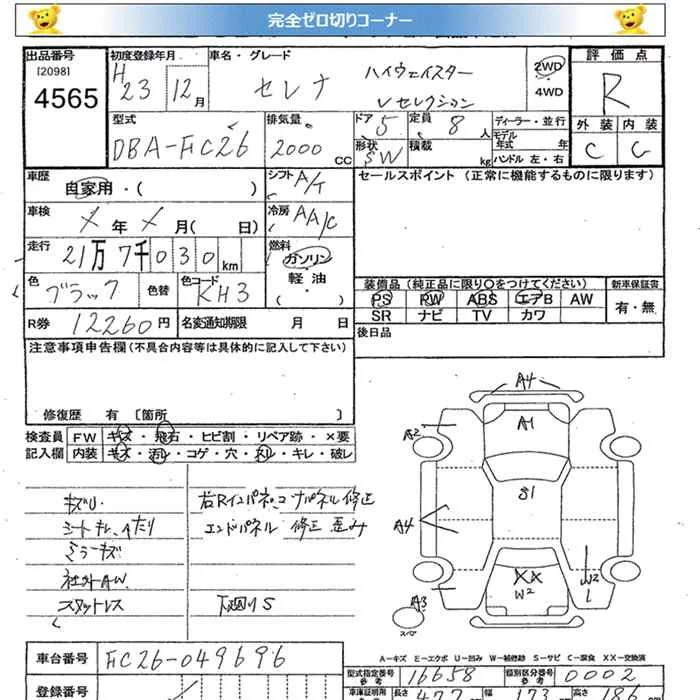 完全ゼロ切りコーナー
出品番号
[2098]
4565
初度登録年月
H23 12月
車名・グレード
セレナ ハイウェイスター
Vセレクション
2WD
4WD
評価点
R
外装 内装
C C
型式
DBA-FC26
排気量
2000 CC
ドア 5
形状 SW
定員 8 人
積載 kg
ディーラー・並行
モデル年式 年
ハンドル 左・右
車歴
自家用・( )
シフト A/T
車検
X年X月( 日)
冷房 AA/C
走行
21万7千030km
燃料
ガソリン
軽油
( )
色
ブラック
色替
色コード
KH3
R券 12260円
名変通知期限 月 日
セールスポイント(正常に機能するものに限ります)
装備品(純正品に限り〇をつけてください)
PS PW ABS エアB AW
SR ナビ TV カワ
新車保証書
有・無
後日品
注意事項申告欄(不具合内容等は具体的に記入して下さい)
修復歴 有 [箇所 ]
検査員
記入欄
FW キズ・飛石・ヒビ割・リペア跡・×要
内装 キズ・汚レ・コゲ・穴・スレ・キレ・破レ
キズU
ミラーキズ
社外AW
スタットレス
エンドパネル 修正 歪み
下廻りS
A4
A1
A2
S1
A4
XX
W2
W2
L
A3
スペア
A-キズ E-エクボ U-凹み W-補修跡 S-サビ C-腐食 XX-交換済
車台番号
FC26-049696
登録番号
型式指定番号
参考
16658
類別区分番号
参考
0002
車庫証明用
長さ 477 幅 173 高さ 186